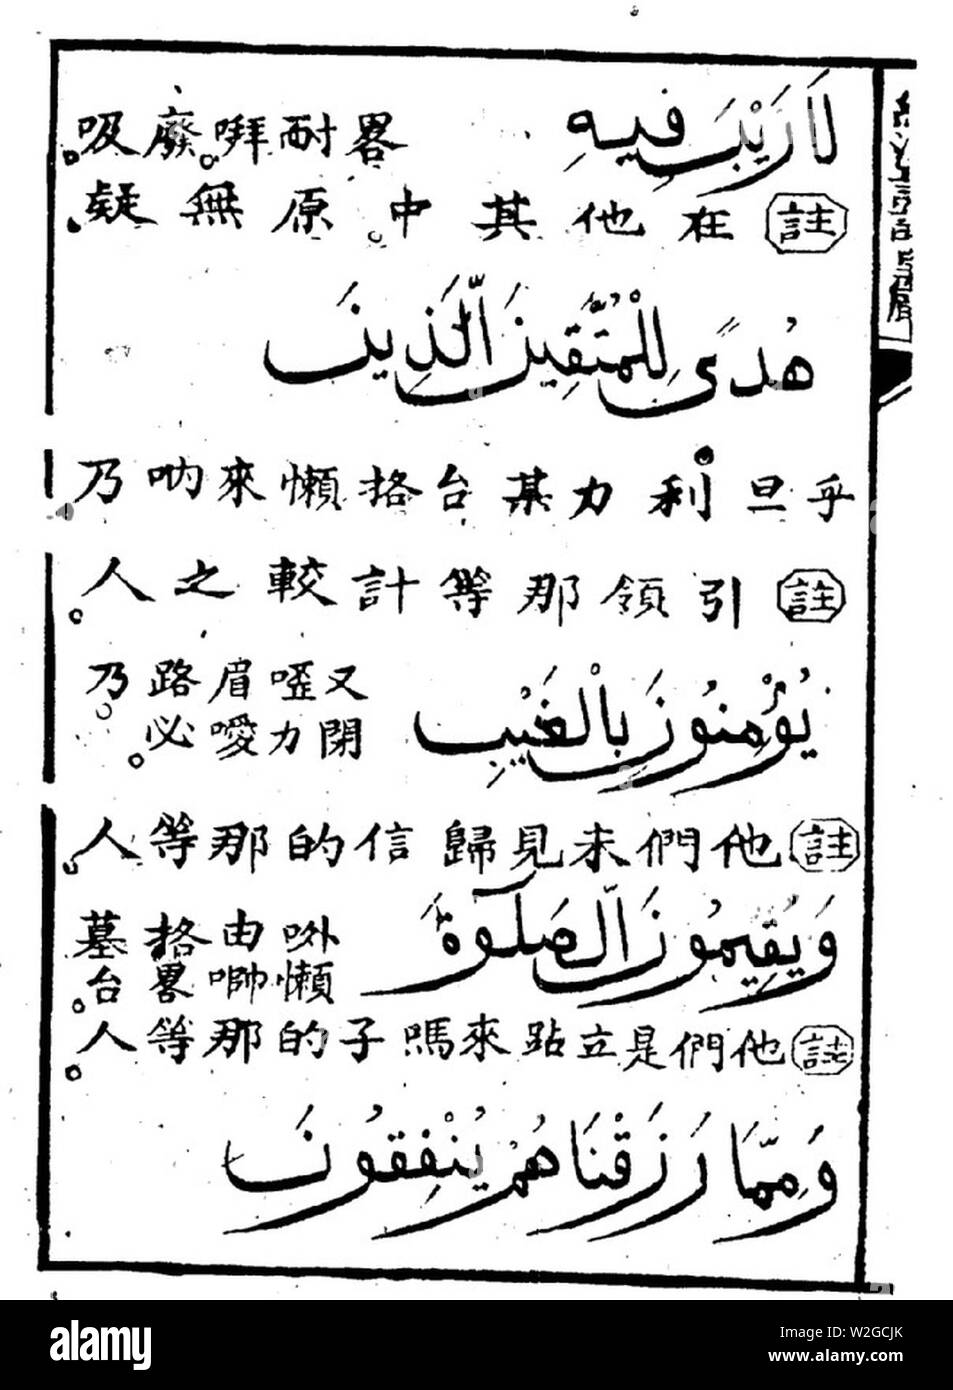 لَا رَيْبَ فِيهِ 畧耐廢吸。
註 在他其中。原無疑。
هُدًى لِلْمُتَّقِينَ الَّذِينَ
乎旦利力某台格懶來吶乃
註 引領那等計較之人。
يُؤْمِنُونَ بِالْغَيْبِ 又啞眉路乃。
閉力噯必。
註 他們未見歸信的那等人。
وَيُقِيمُونَ الصَّلٰوةَ 由格墓
懶畧台。
註 他們是立站來嗎子的那等人。
وَمِمَّا رَزَقْنَاهُمْ يُنْفِقُونَ
alamy
Image ID: W2GCJK
www.alamy.com